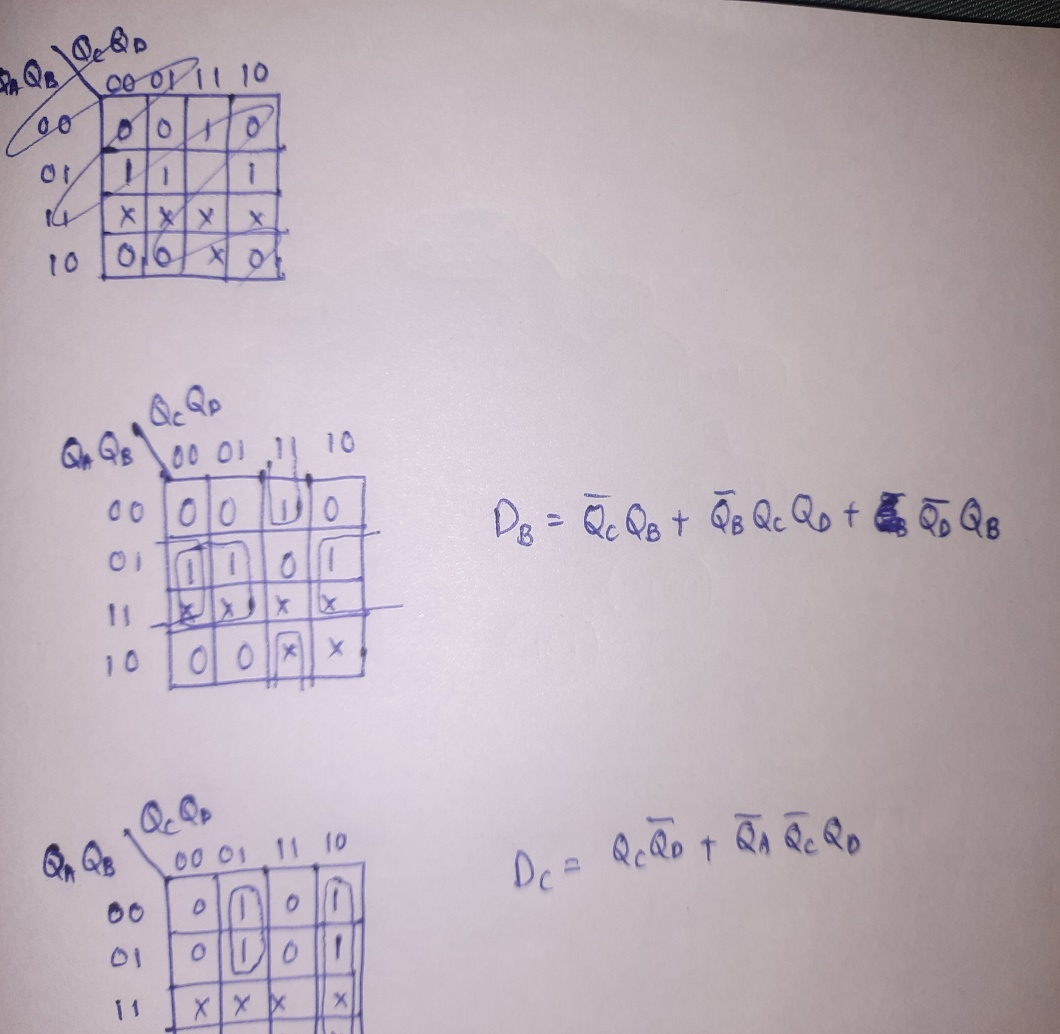 Q_C Q_D
Q_A Q_B 00 01 11 10
00 0 0 1 0
01 1 1 1
11 X X X X
10 0 0 X 0
Q_C Q_D
Q_A Q_B 00 01 11 10
00 0 0 1 0
01 1 1 0 1
11 X X X X
10 0 0 X X
D_B = Q̄_C Q_B + Q̄_B Q_C Q_D + Q̄_D Q_B
Q_C Q_D
Q_A Q_B 00 01 11 10
00 0 1 0 1
01 0 1 0 1
11 X X X X
D_C = Q_C Q̄_D + Q̄_A Q̄_C Q_D